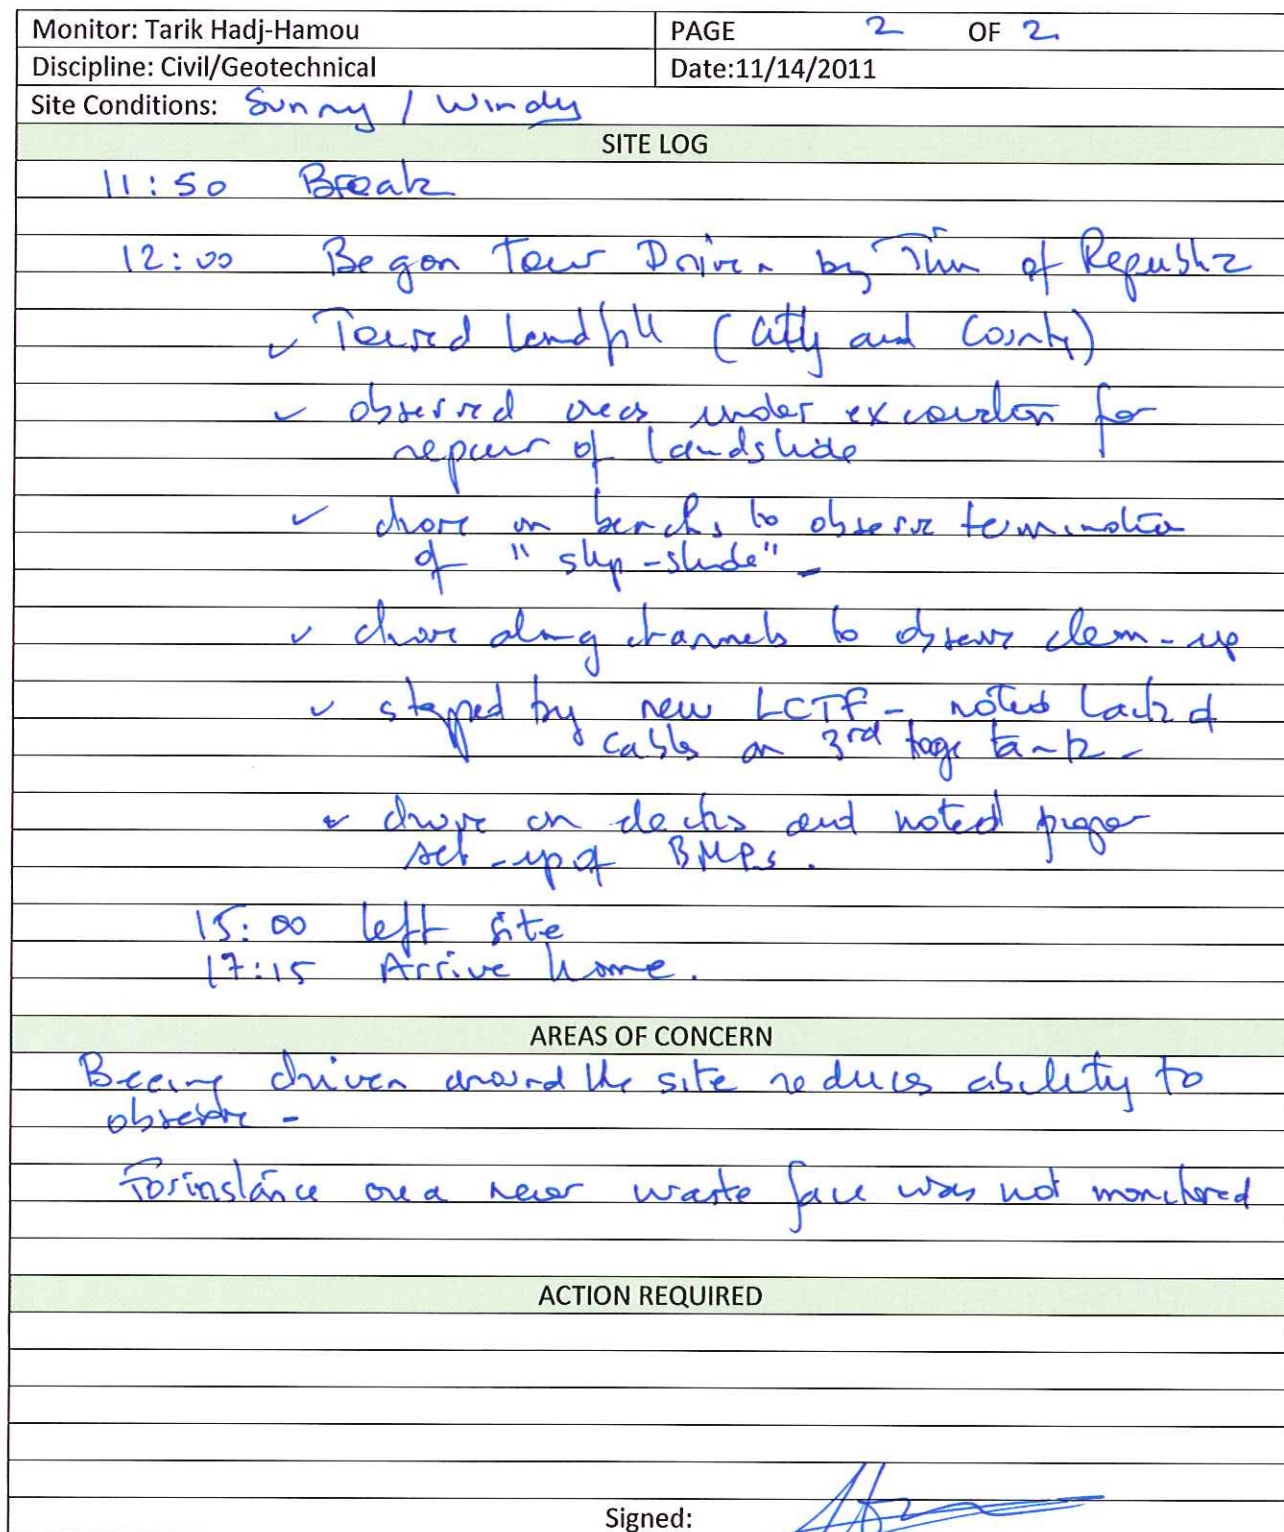 Monitor: Tarik Hadj-Hamou PAGE 2 OF 2
Discipline: Civil/Geotechnical Date:11/14/2011
Site Conditions: Sunny / Windy
SITE LOG
11:50 Break
12:00 Began Tour Driven by Tim of Republic
✓ Toured landfill (City and County)
✓ observed areas under excavation for
repair of landslide
✓ drove on benches to observe termination
of "slip-slide" -
✓ drove along channels to observe clean-up
✓ stopped by new LCTF - noted lack of
cables on 3rd tank -
✓ drove on decks and noted proper
set-up of BMPs.
15:00 left site
17:15 Arrive home.
AREAS OF CONCERN
Being driven around the site reduces ability to
observe -
For instance area near waste face was not monitored
ACTION REQUIRED
Signed: